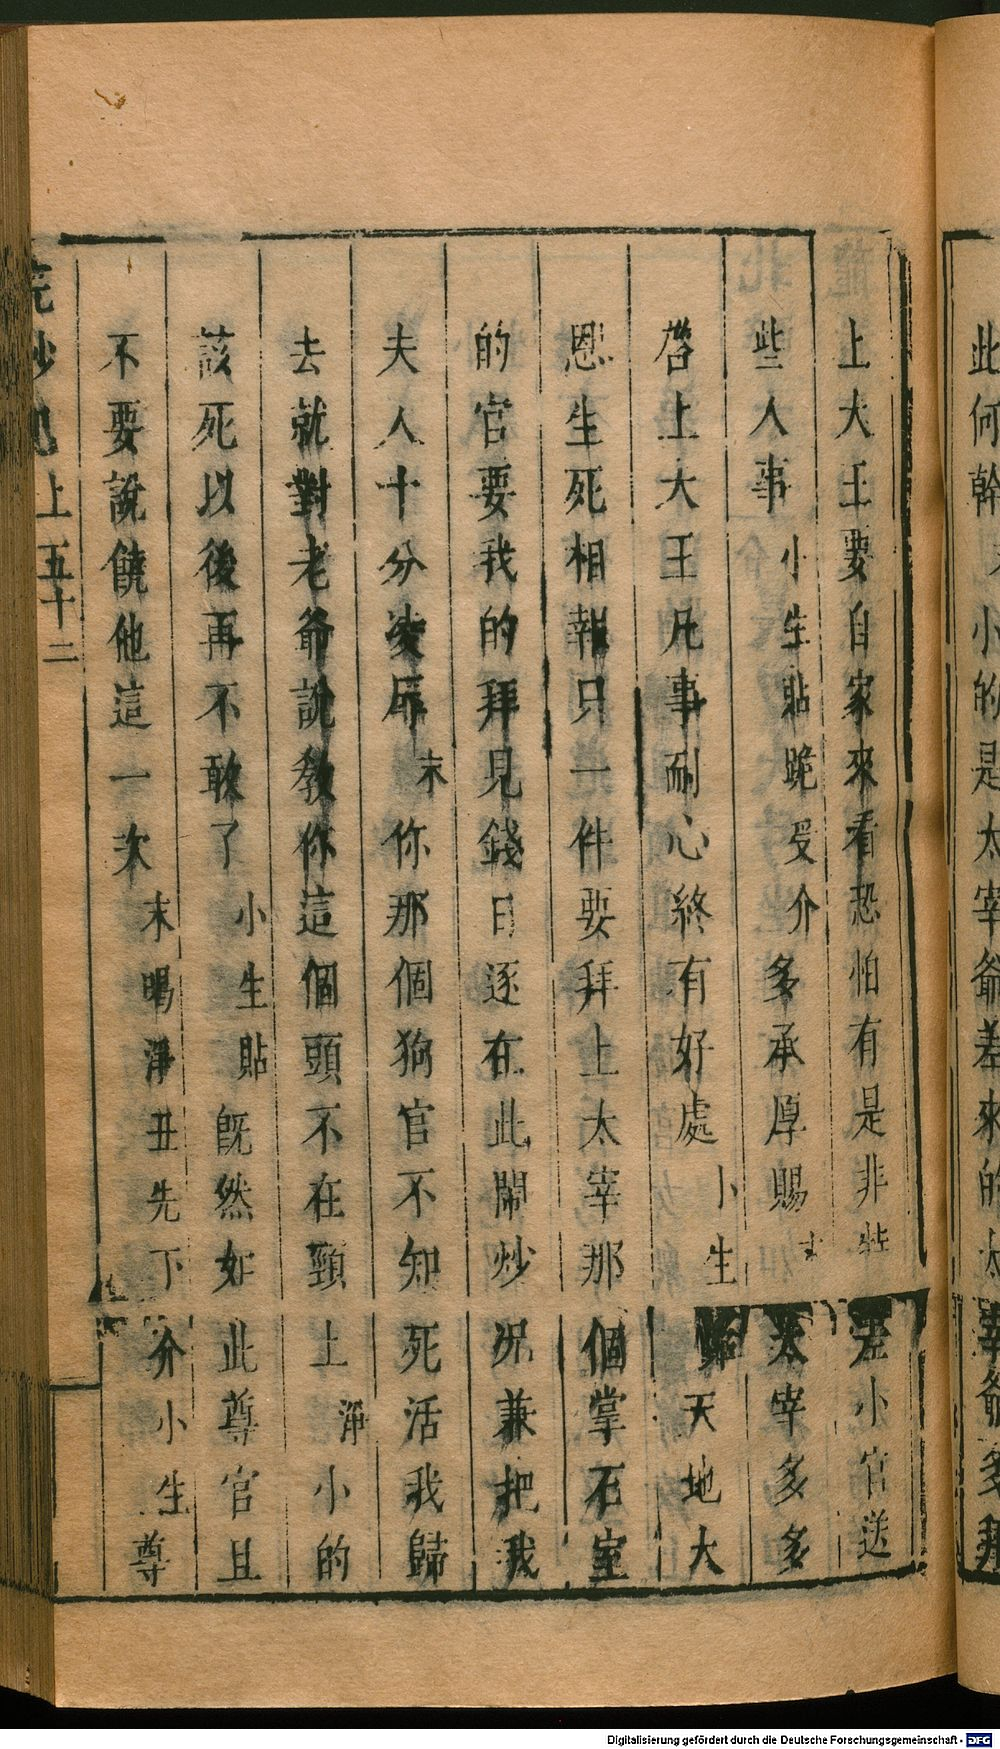 此何幹 小的是太宰爺差來的太宰爺多拜
上大王要自家來看恐怕有是非特差小官送
些人事 小生貼跪受介 多承厚賜 太宰多多
啓上大王凡事耐心終有好處 小生 天地大
恩生死相報只一件要拜上太宰那個掌石室
的官要我的拜見錢日逐在此鬧炒况兼把我
夫人十分凌辱 末 你那個狗官不知死活我歸
去就對老爺說教你這個頭不在頸上 淨 小的
該死以後再不敢了 小生貼 旣然如此尊官且
不要說饒他這一次 末喝淨丑先下介 小生 尊
浣紗記 上 五十二
Digitalisierung gefördert durch die Deutsche Forschungsgemeinschaft - DFG